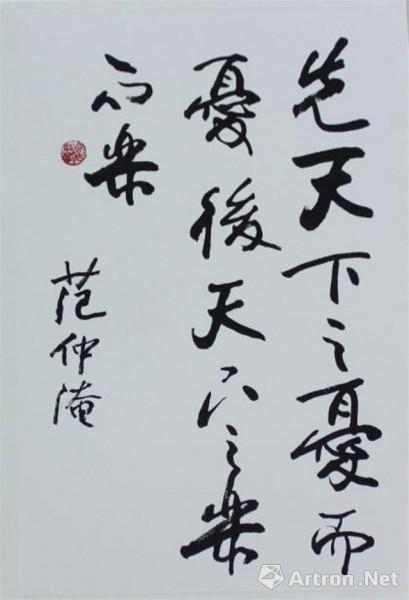 先天下之憂而
憂後天下之樂
而樂
范仲淹
Artron.Net